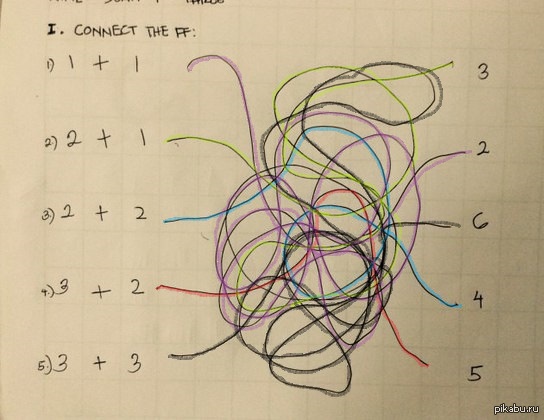 I. CONNECT THE FF:
1) 1 + 1 3
2) 2 + 1 2
3) 2 + 2 6
4) 3 + 2 4
5.) 3 + 3 5
pikabu.ru